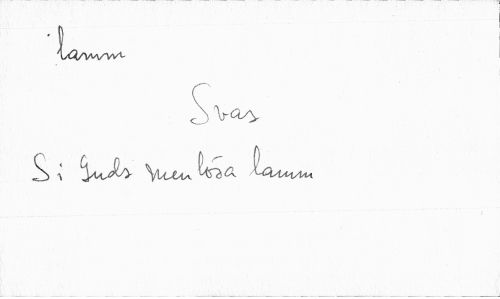 lamm
Svas
Si Guds menlösa lamm